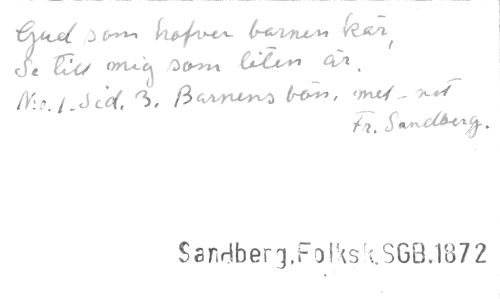 Gud som hafver barnen kär,
Se till mig som liten är.
N:o. 1. Sid. 3. Barnens bön, med not
Fr. Sandberg.
Sandberg.Folksk.SGB.1872